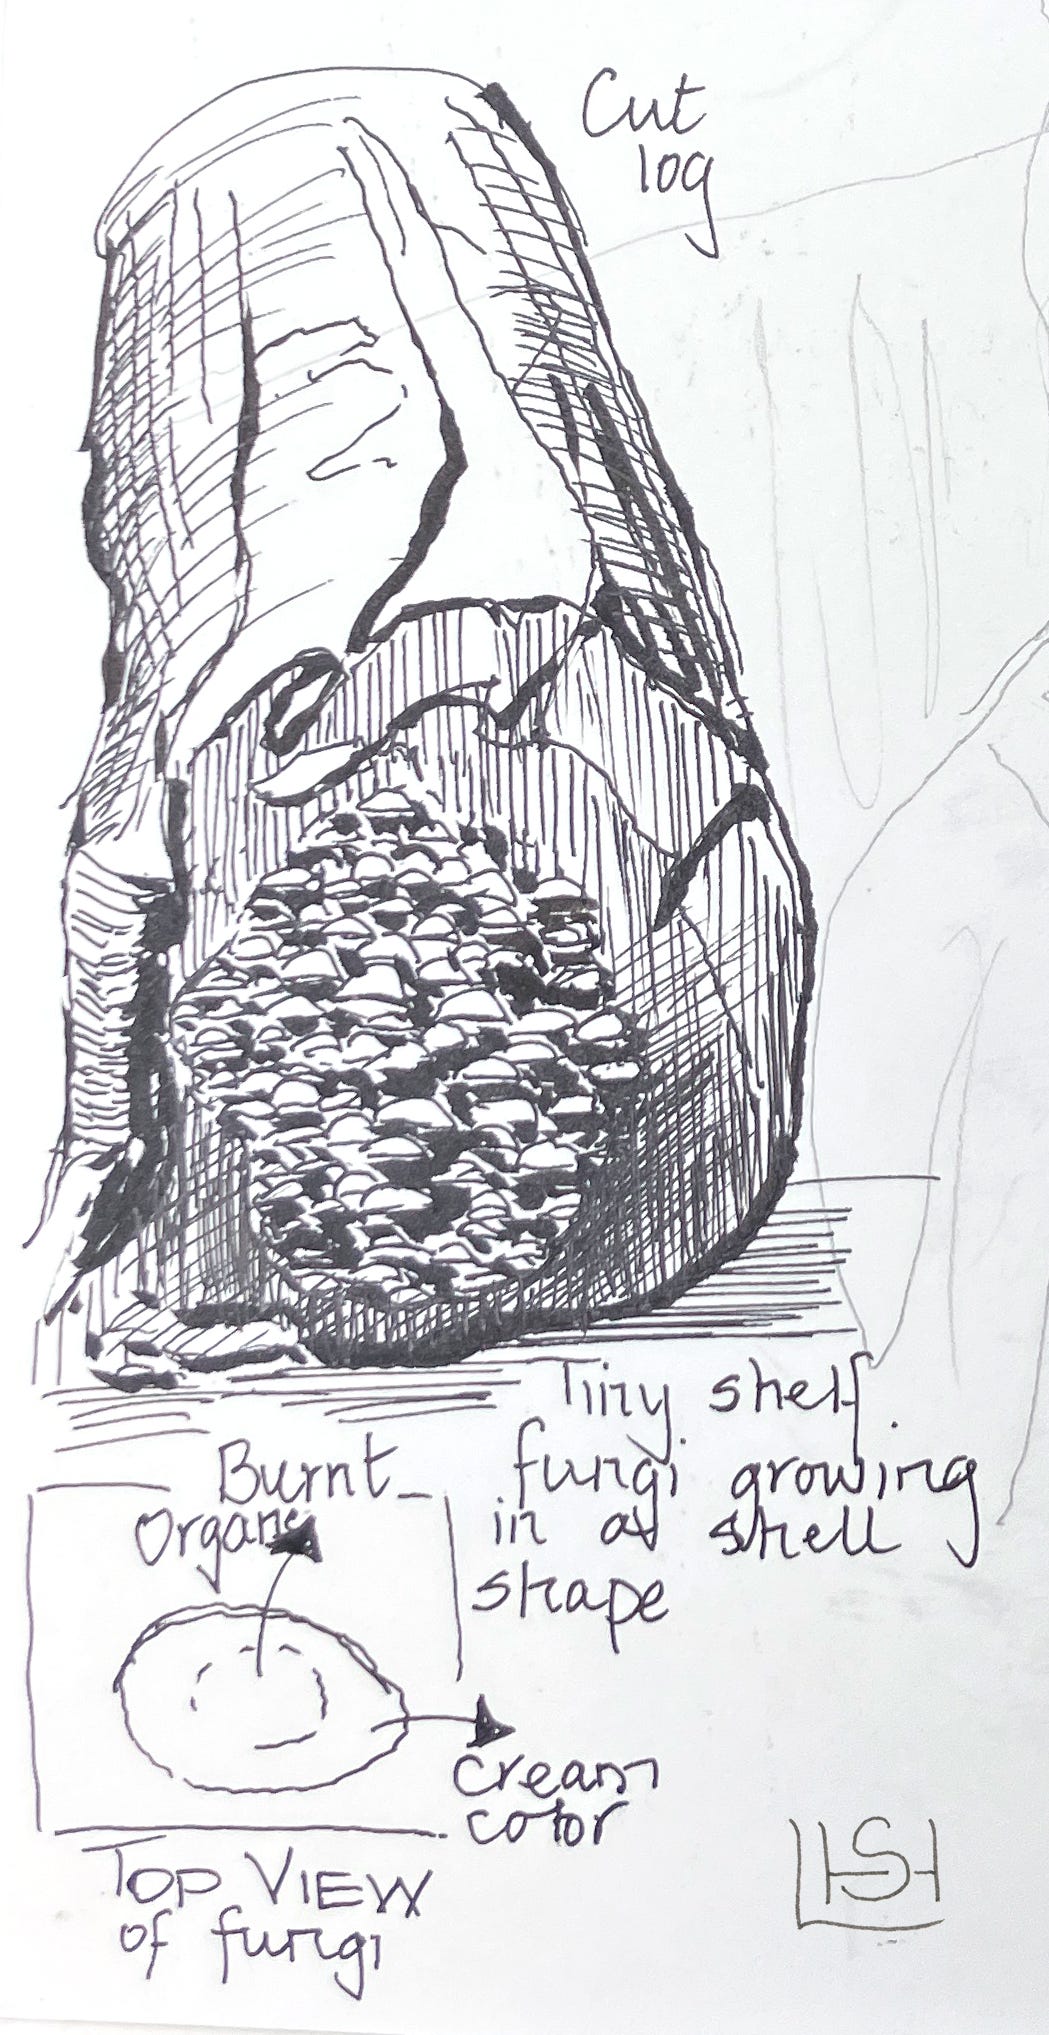 Cut
log
Tiny shelf
fungi growing
in a shell
shape
Burnt
Organe
Cream
color
TOP VIEW
of fungi